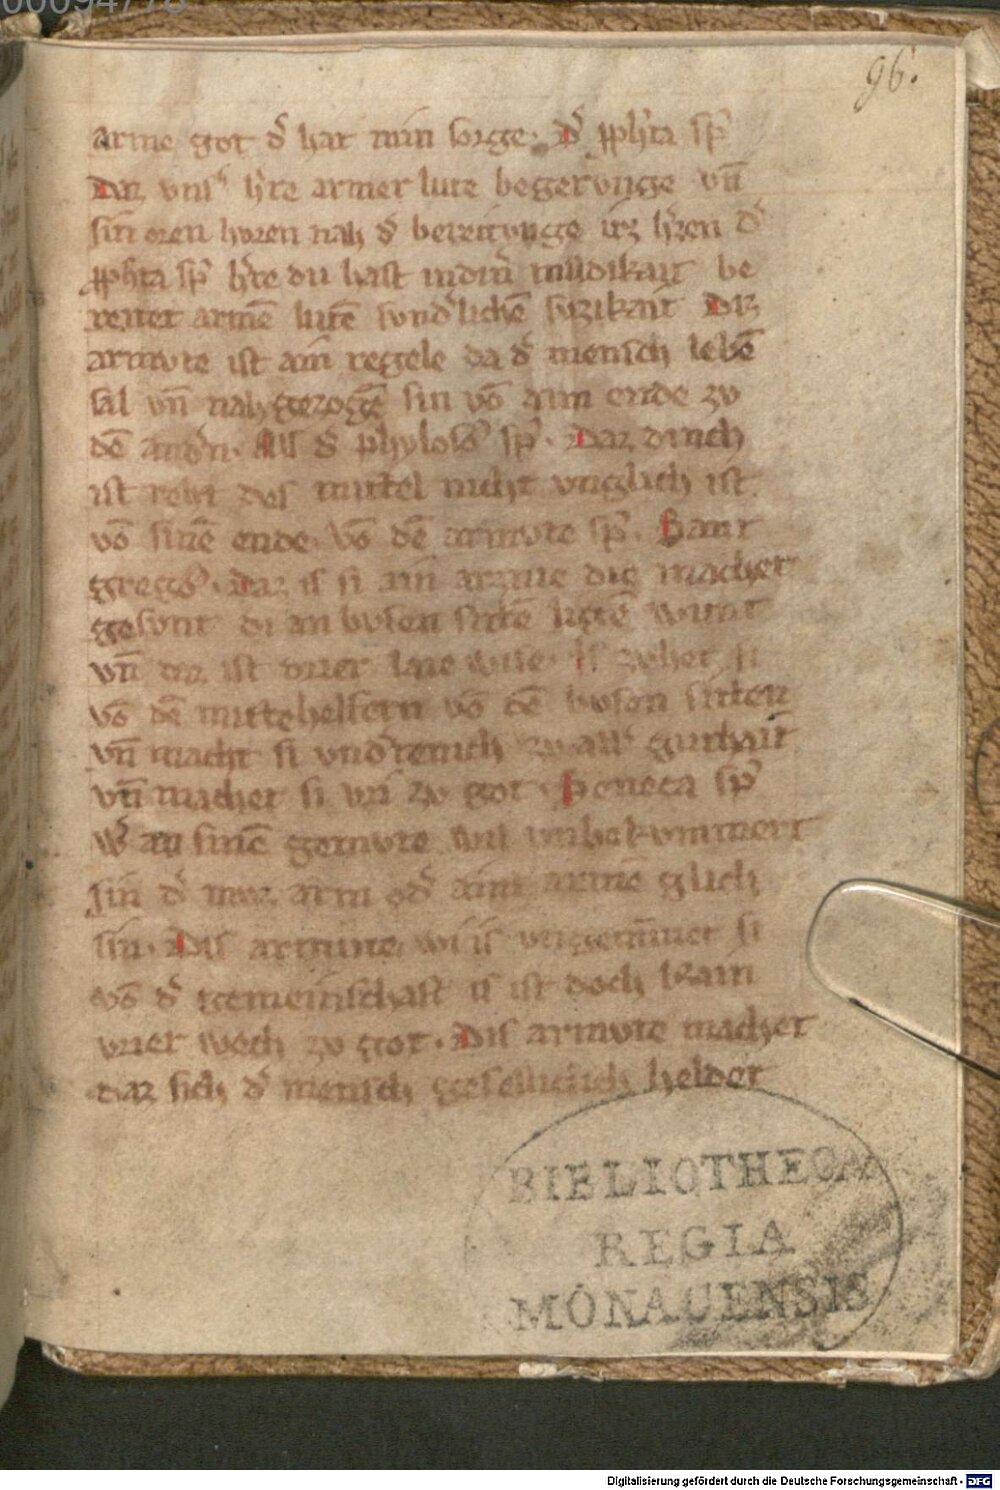 00094778
96.
arme got d̾ hat min sorge. D̾ ꝓph̾ta sp̾
Daz vnſ̾ h̾re armer lute begerunge vn̄
ſin oren horen nah d̾ bereitunge irz h̾zen d̾
ꝓph̾ta sp̾ h̾re du haſt indin̄ mildikait be
reitet armē lutē ſund̾lichē ſuzikait Diz
armvte iſt ain regele da d̾ menſch lebē
ſal vn̄ nah gezogē ſin vō aim ende zv
dē and̾n. Alſ d̾ phyloſo̾ sp̾. Daz dinch
iſt reht des mittel nicht vnglich iſt
vō ſinē ende. Vō dē armvte sp̾. Sant
grego̾. Daz iſ ſi ain arznie die machet
geſunt di an boſen ſitē ligē wunt
vn̄ diz iſt drier laie wiſe. iſ zvhet ſi
vō dē mittehelfern vō dē boſen ſitten
vn̄ macht ſi vnd̾tenich zv all̾ guthait
vn̄ machet ſi zv got. Seneca sp̾
w̾ an ſinē gemvte wil vnbekummert
ſin d̾ mvz arm od̾ aim armē glich
ſin. Diſ armute wi iſ
vō d̾ gemeinſchaft iſ iſt doch kain
wech zv got. Diſ armvte machet
daz ſich d̾ menſch geſellicklich heldet
BIBLIOTHECA
REGIA
MONACENSIS
Digitalisierung gefördert durch die Deutsche Forschungsgemeinschaft - DFG